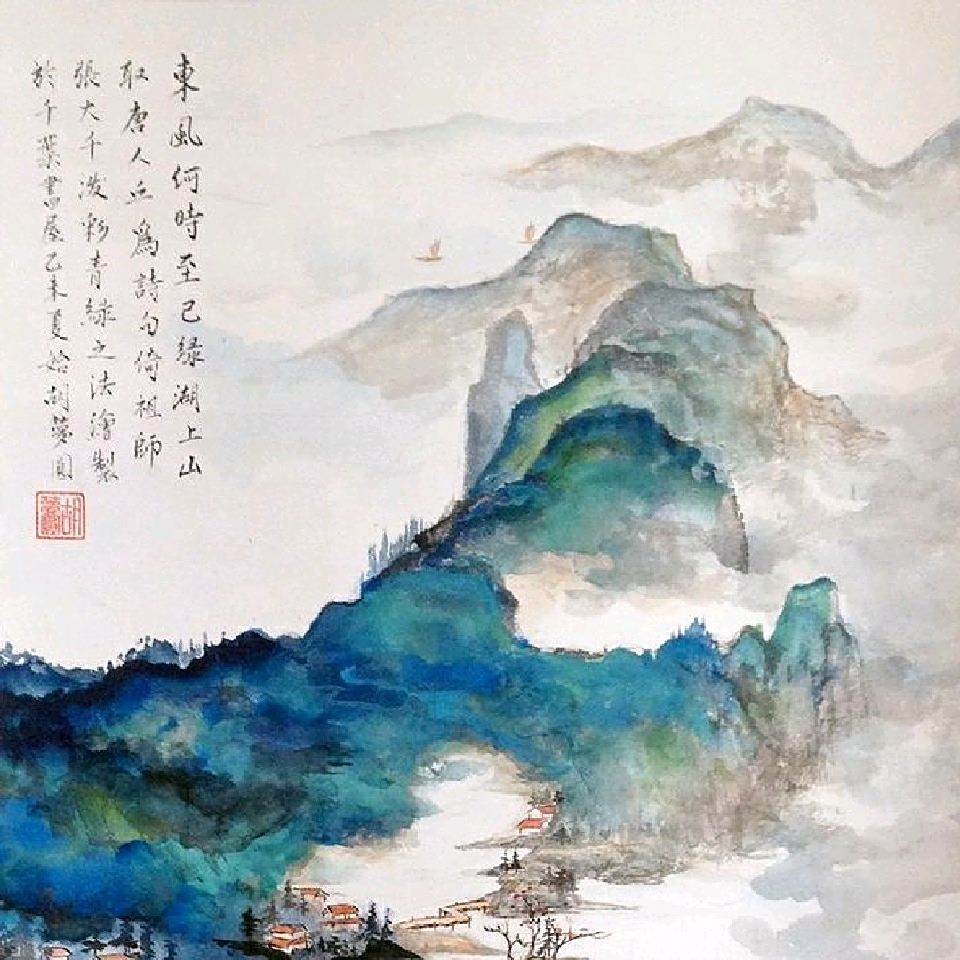 東風何時至已綠湖上山
取唐人丘為詩句倚祖師
張大千潑彩青綠之法澮製
於千葉書屋乙未夏始胡夢圓
胡